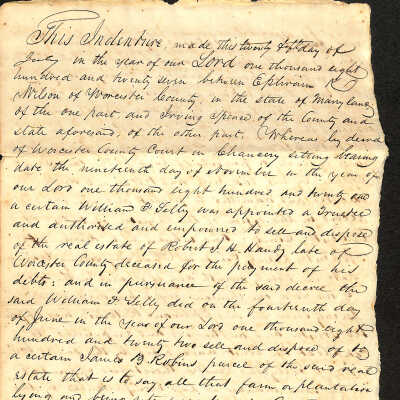 This Indenture, made this twenty day of
July in the year of our Lord one thousand eight
hundred and twenty seven between Ephraim K
Wilson of Worcester County, in the state of Maryland
of the one part and Irving Spence of the County and
state aforesaid, of the other part. Whereas by decree
of Worcester County Court in Chancery sitting bearing
date the nineteenth day of November in the year of
our Lord one thousand eight hundred and twenty one
a certain William F Selby was appointed a Trustee
and authorised and empowered to sell and dispose
of the real estate of Robert J. H. Handy late of
Worcester County deceased for the payment of his
debts; and in pursuance of the said decree the
said William F Selby did on the fourteenth day
of June in the year of our Lord one thousand eight
hundred and twenty two sell and dispose of to
a certain James B. Robins parcel of the said real
estate that is to say all that farm or plantation
lying and being